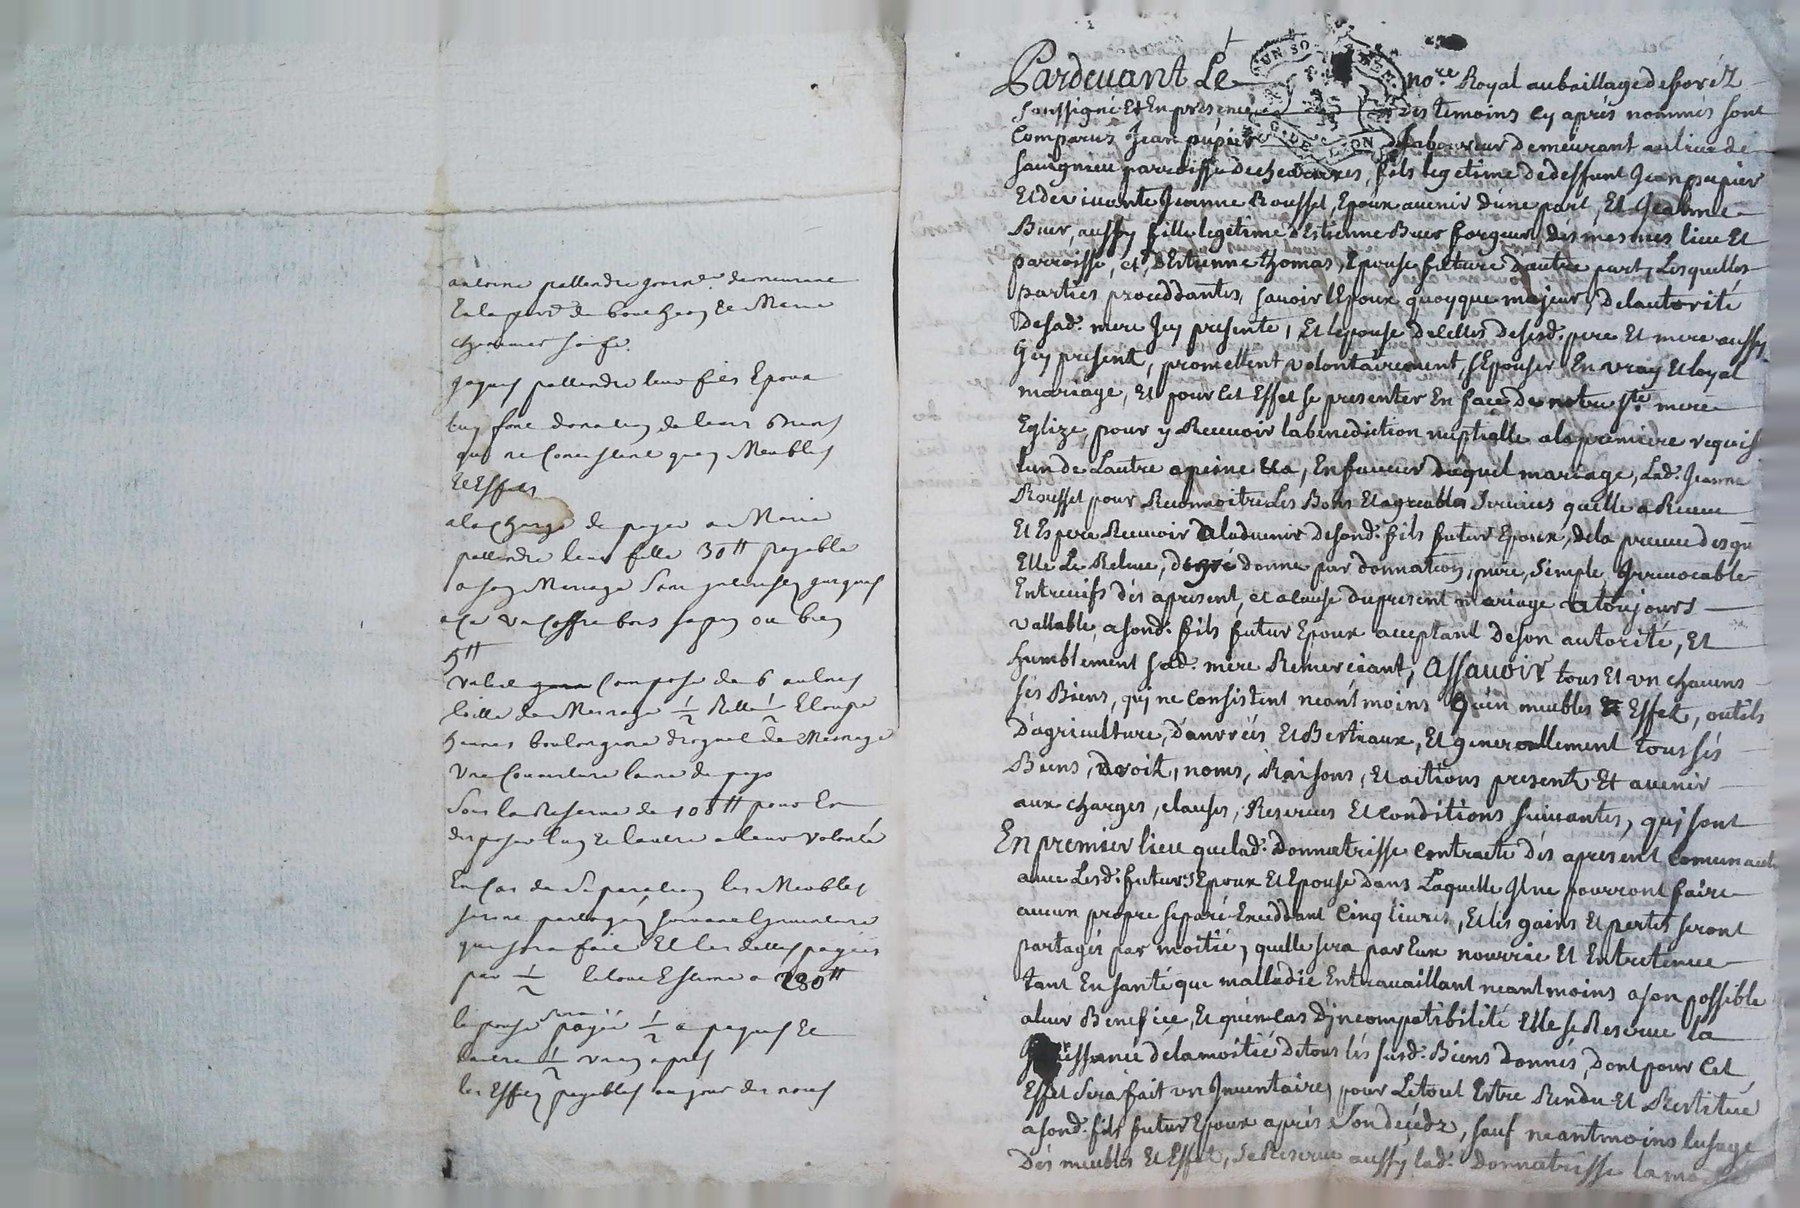 antoine pallandre journ.r demeurant
En la par.de de boen et Marie
sa fe.
pallandre leur fils Epoux
luy font donation de leurs Biens
qui ne Consistent quen Meubles
Et Effets
a la Charge de payer a Marie
pallandre leur fille 30tt payable
a son Mariage sans jusques
a Ce un Coffre bois sapin ou bien
5tt
Compose de 6 aulnes
toille de Menage 1/2 1/2
de Menage
Une Couverture laine de pays
Sous la Reserve de 100tt pour En
disposer lun Et lautre a leur volonté
En Cas de Separation les Meubles
seront partagés suivant Linventaire
qui sera fait Et les dettes payées
par 1/2 le tout Estimé a 280tt
lepouse sera payée 1/2 a paques Et
lautre 1/2 un an apres
les Effets payables au jour des noces
Pardevant Le no.re Royal au baillage de foréz
soussigné Et En présence des temoins cy aprés nommés sont
Comparus Jean pupier Laboureur demeurant au lieu de
Savignieu parroisse de , fils legitime de deffunt Jean pupier
Et de vivante Jeanne Rousset, Epoux avenir dúne part, Et Jeanne
Buer, aussy fille legitime dEstienne Buer forgeur, des mesmes lieu Et
parroisse, et, dEstienne thomas, Epouse future dautre part, Lesquelles
parties proceddantes, savoir lEpoux quoyque majeur, de lautorité
de sad. mere Jcy presente, Et lepouse de celles de sesd. pere Et mere aussy
Jcy present, promettent volontairement, sEpouser En vray Et loyal
mariage, Et pour Cet Effet se presenter En face de notre s.te mere
Eglize, pour y Recevoir la benediction nuptialle a la premiere requis.
lun de Lautre a peine &a, En faveur duquel mariage, Lad. Jeanne
Rousset pour Reconnoitre Les Bons Et agreables Services quelle a Receu
Et Espere Recevoir a ladvenir de sond. fils futur Epoux, de la preuve desqu
Elle Le Releve, de gré donne par donnation, pure, Simple, Jrrevocable
Entrevifs dés apresent, et a Cause du present mariage a toujours
vallable, a sond. fils futur Epoux acceptant de son autorité, Et
humblement sad. mere Remerciant, Assavoir tous Et un chacuns
sés Biens, qui ne Consistent neantmoins quén meubles & Effets, outils
Dágriculture, Et Bestiaux, Et generallement tous sés
Biens, droits, noms, Raisons, Et actions presents Et avenir
aux charges, clauses, Reserves Et Conditions suivantes, qui sont
En premier lieu que lad. Donnatrisse contracte dés apresent comunauté
avec Lesd. futurs Epoux Et Epouse dans Laquelle Jl ne pourront faire
aucun propre separé Exceddant Cinq livres, Et lés gains Et pertes seront
partagés par moitié, quélle sera par Eux nourrie Et Entretenue
tant En santé que malladie En travaillant neantmoins a son possible
a leur Benefice, Et quén cas dJncompatibilité Elle se Reserve la
Jouissance de la moitié de tous lés susd. Biens donnés, dont pour Cet
Effet sera fait un Jnventaire, pour Le tout Estre Rendu Et Restitué
a sond. fils futur Epoux aprés son décédz, sauf neantmoins lusage
Dés meubles Et Effets, se Reserve aussy lad. Donnatrisse